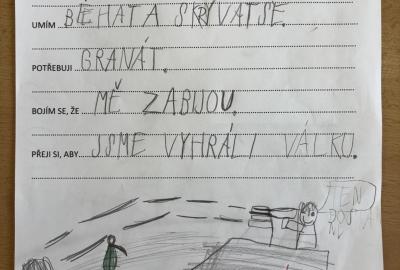 UMÍM BĚHAT A SKRÝVAT SE.
POTŘEBUJI GRANÁT.
BOJÍM SE, ŽE MĚ ZABIJOU.
PŘEJI SI, ABY JSME VYHRÁLI VÁLKU.